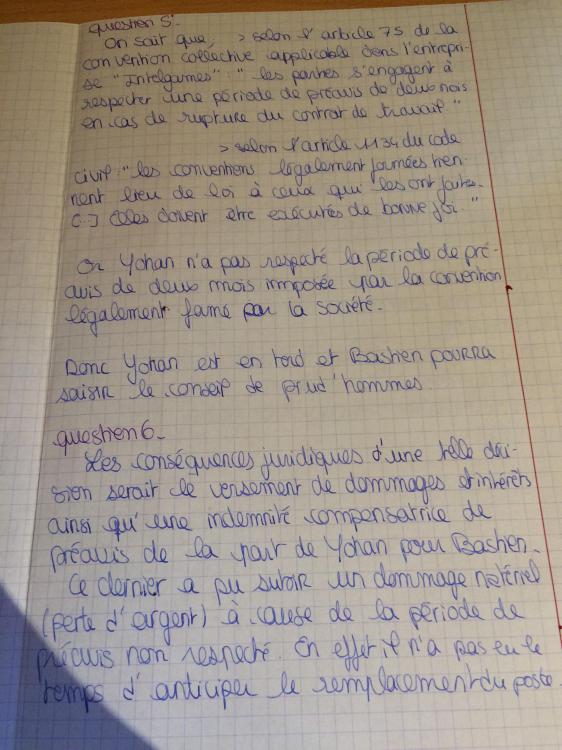 question 5:
On sait que, > selon l'article 75 de la
convention collective applicable dans l'entrepri-
se "Intelgames": "les parties s'engagent à
respecter une période de préavis de deux mois
en cas de rupture du contrat de travail"
> selon l'article 1134 du code
civil: "les conventions légalement formées tien-
nent lieu de loi à ceux qui les ont faites.
(..) Elles doivent etre exécutés de bonne foi."
Or Yohan n'a pas respecté la période de pré-
avis de deux mois imposée par la convention
légalement formé par la société.
Donc Yohan est en tord et Bastien pourra
saisir le conseil de prud'hommes.
question 6.
Les conséquences juridiques d'une telle déci-
sion serait le versement de dommages et intérêts
ainsi qu'une indemnité compensatrice de
préavis de la part de Yohan pour Bastien.
Ce dernier a pu subir un dommage matériel
(perte d'argent) à cause de la période de
préavis non respecté. En effet il n'a pas eu le
temps d'anticiper le remplacement du poste.